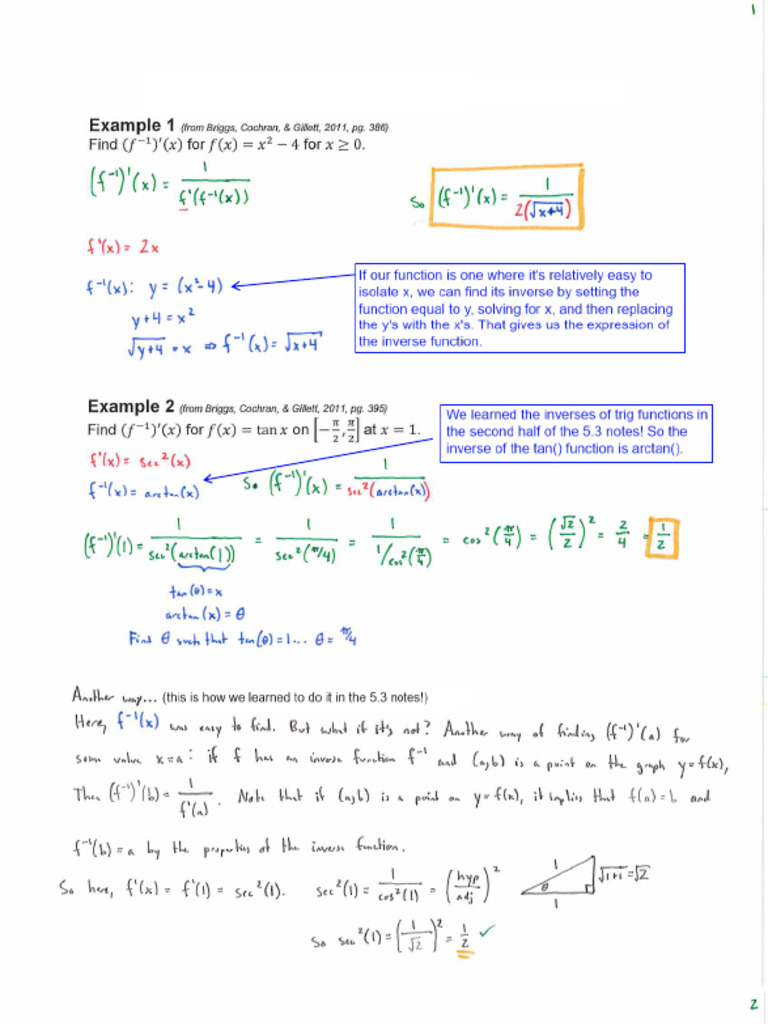 1
Example 1 (from Briggs, Cochran, & Gillett, 2011, pg. 386)
Find (f⁻¹)′(x) for f(x) = x² − 4 for x ≥ 0.
(f⁻¹)'(x) = 1 / f'(f⁻¹(x))
So (f⁻¹)'(x) = 1 / 2(√x+4)
f'(x) = 2x
f⁻¹(x): y = (x²-4)
y+4 = x²
√y+4 = x ⇒ f⁻¹(x) = √x+4
If our function is one where it's relatively easy to
isolate x, we can find its inverse by setting the
function equal to y, solving for x, and then replacing
the y's with the x's. That gives us the expression of
the inverse function.
Example 2 (from Briggs, Cochran, & Gillett, 2011, pg. 395)
Find (f⁻¹)′(x) for f(x) = tan x on [−π/2, π/2] at x = 1.
We learned the inverses of trig functions in
the second half of the 5.3 notes! So the
inverse of the tan() function is arctan().
f'(x) = sec²(x)
f⁻¹(x) = arctan(x)
So (f⁻¹)'(x) = 1 / sec²(arctan(x))
(f⁻¹)'(1) = 1 / sec²(arctan(1)) = 1 / sec²(π/4) = 1 / 1/cos²(π/4) = cos²(π/4) = (√2/2)² = 2/4 = 1/2
tan(θ) = x
arctan(x) = θ
Find θ such that tan(θ) = 1... θ = π/4
Another way... (this is how we learned to do it in the 5.3 notes!)
Here, f⁻¹(x) was easy to find. But what if it's not? Another way of finding (f⁻¹)'(a) for
some value x=a: if f has an inverse function f⁻¹ and (a,b) is a point on the graph y=f(x),
Then (f⁻¹)'(b) = 1 / f'(a). Note that if (a,b) is a point on y=f(x), it implies that f(a)=b and
f⁻¹(b)=a by the properties of the inverse function.
So here, f'(x) = f'(1) = sec²(1). sec²(1) = 1 / cos²(1) = (hyp/adj)²
1 θ 1 √1+1 = √2
So sec²(1) = (1/√2)² = 1/2 ✓
2